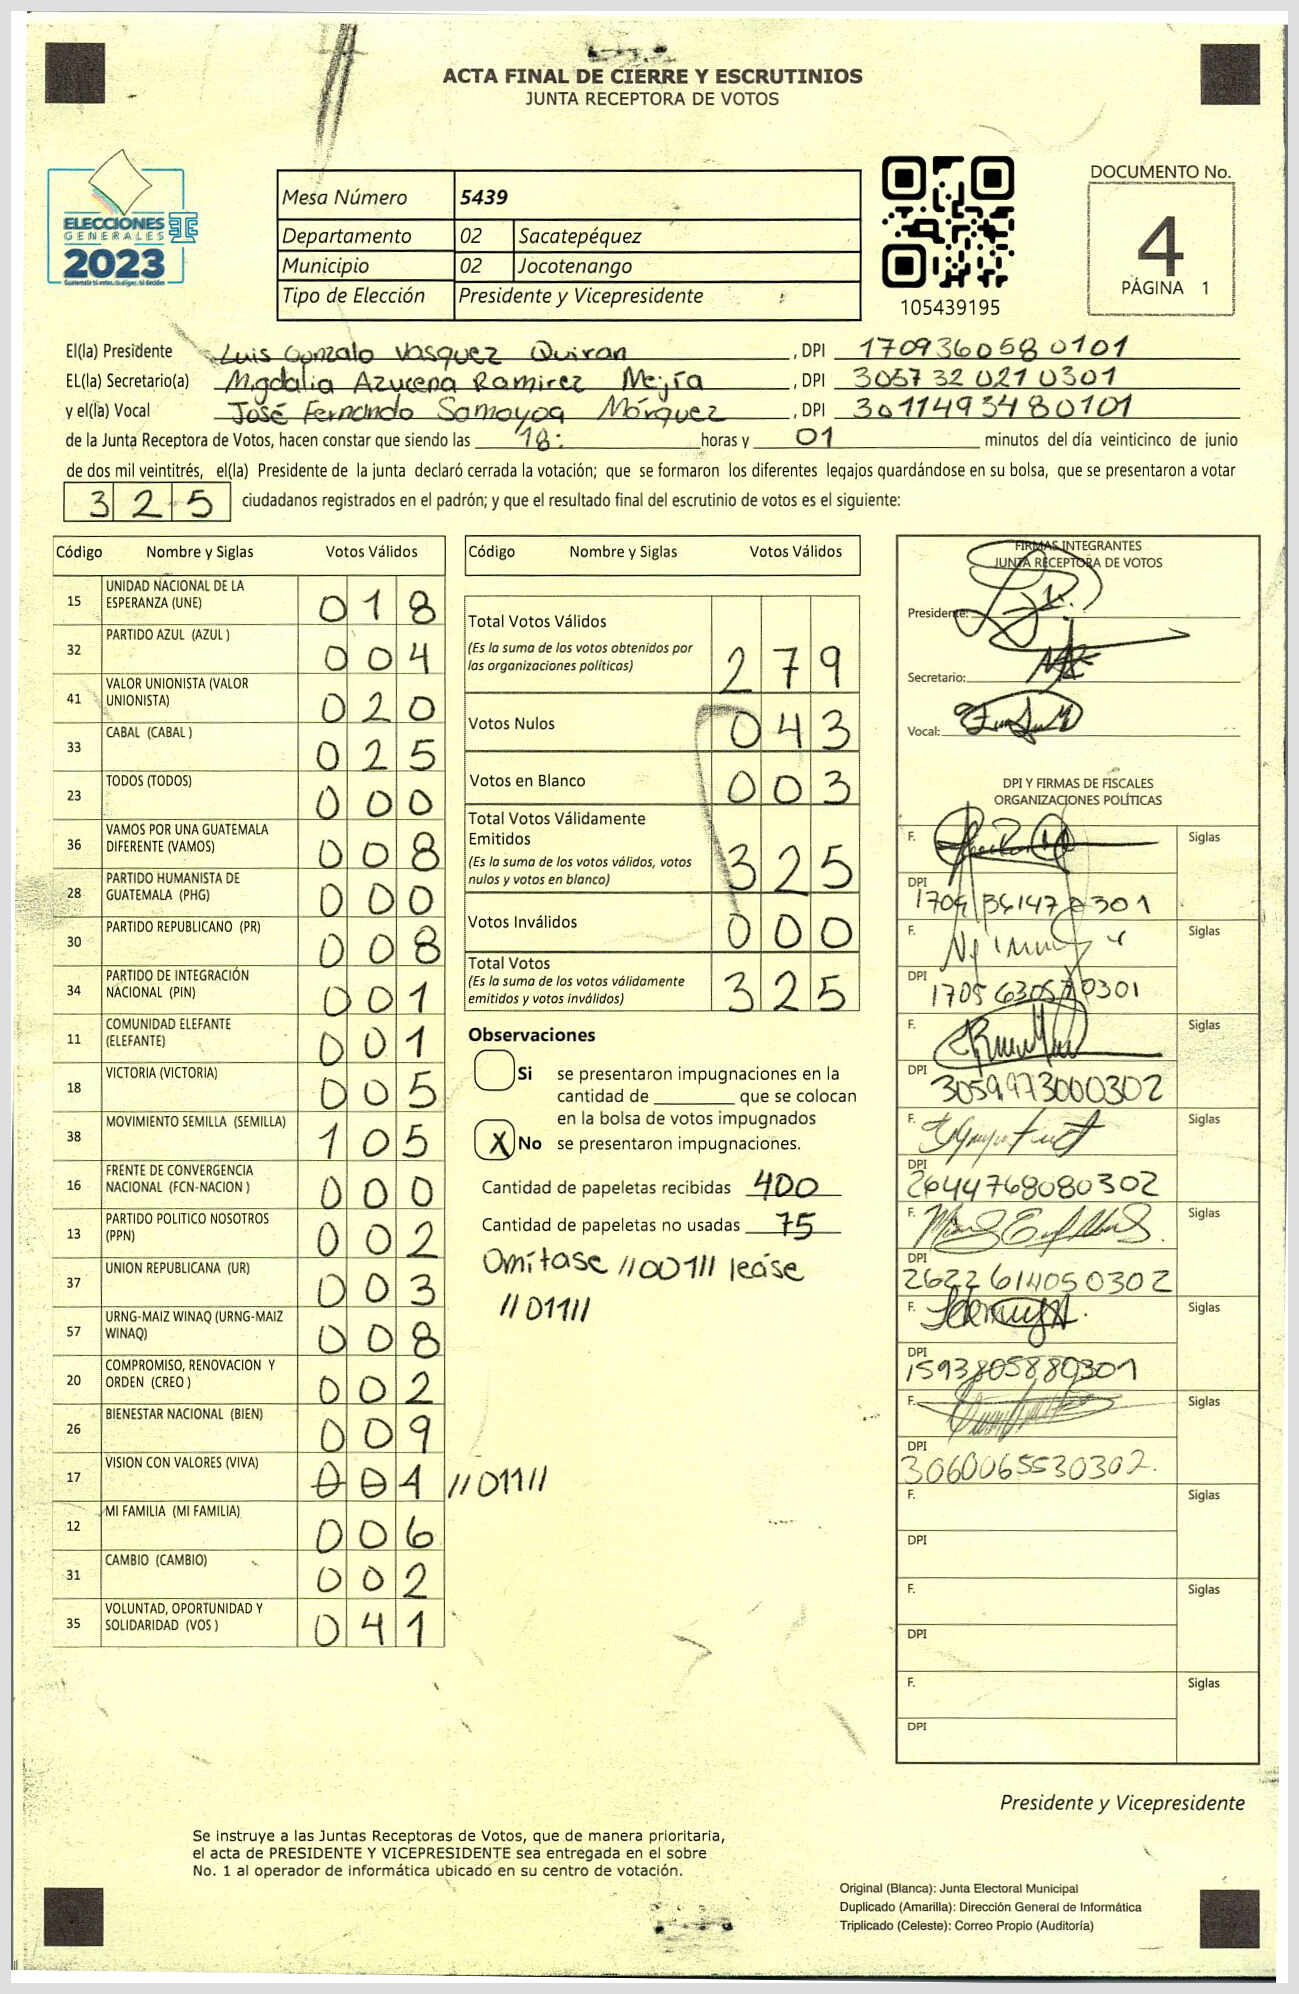 ACTA FINAL DE CIERRE Y ESCRUTINIOS
JUNTA RECEPTORA DE VOTOS
ELECCIONES
GENERALES
2023
Mesa Número 5439
Departamento 02 Sacatepéquez
Municipio 02 Jocotenango
Tipo de Elección Presidente y Vicepresidente
105439195
DOCUMENTO No.
4
PÁGINA 1
El(la) Presidente Luis Gonzalo Vasquez Quiran , DPI 1709360580101
EL(la) Secretario(a) Migdalia Azucena Ramirez Mejía , DPI 3057320210301
y el(la) Vocal José Fernando Samayoa Márquez , DPI 3011493480101
de la Junta Receptora de Votos, hacen constar que siendo las 18: horas y 01 minutos del día veinticinco de junio
de dos mil veintitrés, el(la) Presidente de la junta declaró cerrada la votación; que se formaron los diferentes legajos quardándose en su bolsa, que se presentaron a votar
3 2 5 ciudadanos registrados en el padrón; y que el resultado final del escrutinio de votos es el siguiente:
Código Nombre y Siglas Votos Válidos
15 UNIDAD NACIONAL DE LA ESPERANZA (UNE) 0 1 8
32 PARTIDO AZUL (AZUL ) 0 0 4
41 VALOR UNIONISTA (VALOR UNIONISTA) 0 2 0
33 CABAL (CABAL ) 0 2 5
23 TODOS (TODOS) 0 0 0
36 VAMOS POR UNA GUATEMALA DIFERENTE (VAMOS) 0 0 8
28 PARTIDO HUMANISTA DE GUATEMALA (PHG) 0 0 0
30 PARTIDO REPUBLICANO (PR) 0 0 8
34 PARTIDO DE INTEGRACIÓN NACIONAL (PIN) 0 0 1
11 COMUNIDAD ELEFANTE (ELEFANTE) 0 0 1
18 VICTORIA (VICTORIA) 0 0 5
38 MOVIMIENTO SEMILLA (SEMILLA) 1 0 5
16 FRENTE DE CONVERGENCIA NACIONAL (FCN-NACION ) 0 0 0
13 PARTIDO POLITICO NOSOTROS (PPN) 0 0 2
37 UNION REPUBLICANA (UR) 0 0 3
57 URNG-MAIZ WINAQ (URNG-MAIZ WINAQ) 0 0 8
20 COMPROMISO, RENOVACION Y ORDEN (CREO ) 0 0 2
26 BIENESTAR NACIONAL (BIEN) 0 0 9
17 VISION CON VALORES (VIVA) 0 0 1 //011//
12 MI FAMILIA (MI FAMILIA) 0 0 6
31 CAMBIO (CAMBIO) 0 0 2
35 VOLUNTAD, OPORTUNIDAD Y SOLIDARIDAD (VOS ) 0 4 1
Código Nombre y Siglas Votos Válidos
Total Votos Válidos
(Es la suma de los votos obtenidos por
las organizaciones políticas) 2 7 9
Votos Nulos 0 4 3
Votos en Blanco 0 0 3
Total Votos Válidamente
Emitidos
(Es la suma de los votos válidos, votos
nulos y votos en blanco) 3 2 5
Votos Inválidos 0 0 0
Total Votos
(Es la suma de los votos válidamente
emitidos y votos inválidos) 3 2 5
Observaciones
Si se presentaron impugnaciones en la
cantidad de ________ que se colocan
en la bolsa de votos impugnados
X No se presentaron impugnaciones.
Cantidad de papeletas recibidas 400
Cantidad de papeletas no usadas 75
Omítase //001// leáse
//011//
FIRMAS INTEGRANTES
JUNTA RECEPTORA DE VOTOS
Presidente:
Secretario:
Vocal:
DPI Y FIRMAS DE FISCALES
ORGANIZACIONES POLÍTICAS
F. Siglas
DPI
F. Siglas
DPI
F. Siglas
DPI 3059973000302
F. Siglas
DPI 2644768080302
F. Siglas
DPI 2622614050302
F. Siglas
DPI 1593805880301
F. Siglas
DPI 3060065530302.
F. Siglas
DPI
F. Siglas
DPI
F. Siglas
DPI
Presidente y Vicepresidente
Se instruye a las Juntas Receptoras de Votos, que de manera prioritaria,
el acta de PRESIDENTE Y VICEPRESIDENTE sea entregada en el sobre
No. 1 al operador de informática ubicado en su centro de votación.
Original (Blanca): Junta Electoral Municipal
Duplicado (Amarilla): Dirección General de Informática
Triplicado (Celeste): Correo Propio (Auditoría)